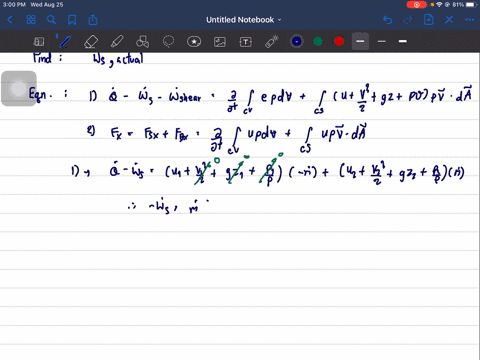 3:00 PM Wed Aug 25
51%
Untitled Notebook
Find : Ẇs, actual
Eqn. : 1) Q̇ - Ẇs - Ẇshear = ∂/∂t ∫cv e ρ d∀ + ∫cs (u + V²/2 + gz + pv) ρV⃗ · dA⃗
2) Fx = Fsx + FBx = ∂/∂t ∫cv uρd∀ + ∫cs uρV⃗ · dA⃗
1) → Q̇ - Ẇs = (u₁ + V₁²/2 0 + gz₁ 0 + p₁/ρ 0) (-ṁ) + (u₂ + V₂²/2 + gz₂ + p₂/ρ) (ṁ)
∴ -Ẇs, ṁ